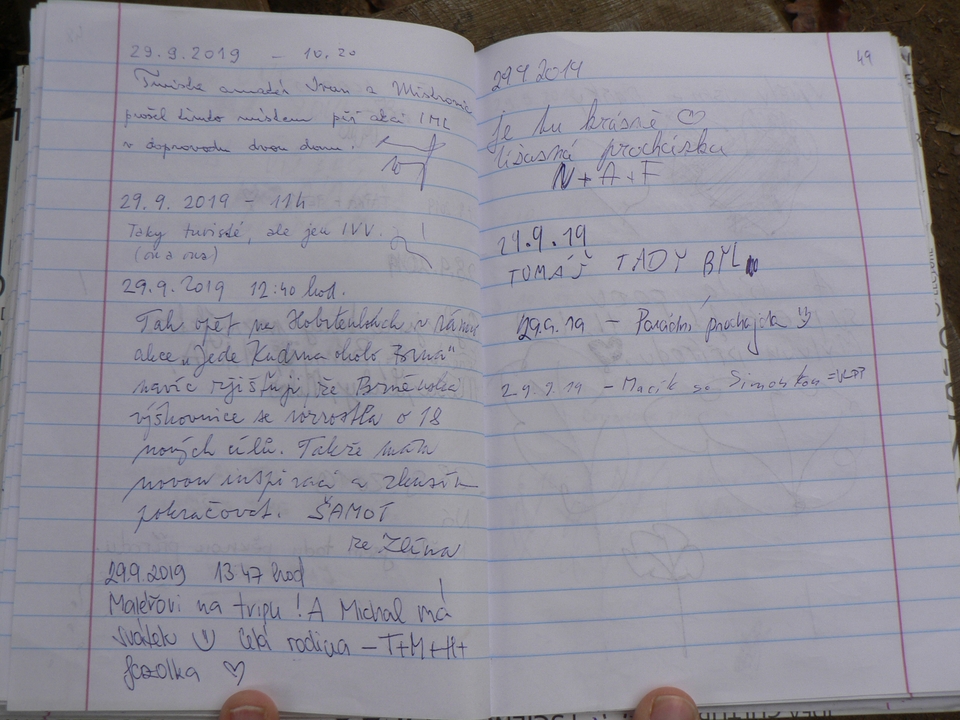 29.9.2019 - 10.20
Turista amatér Ivan z
prošel tímto místem při akci IML
v doprovodu dvou dam.
29.9.2019 - 11h
Taky turisté, ale jen IVV.
(on a ona)
29.9.2019 12:40 hod.
Tak opět na v rámci
akce „Jede Kudrna okolo Brna"
navíc zjišťuji, že Brněnská
výškovnice se rozrostla o 18
nových cílů. Takže mám
novou inspiraci a zkusím
pokračovat. ŠAMOT
ze Zlína
29.9.2019 13 47 hod
Maléřovi na tripu! A Michal má
svátek celá rodina - T+M+H+
fazolka ♡
49
29 9 2019
je tu krásně ♡
úžasná procházka
N + A + F
29.9.19
TOMÁŠ TADY BYL
29.9.19 - Parádní
29.9.19 -